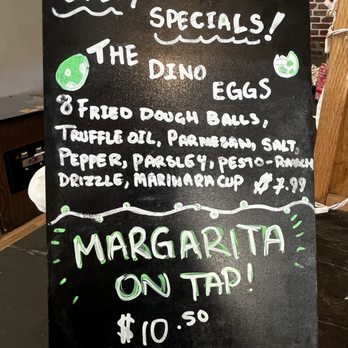 SPECIALS!
THE
DINO
EGGS
8 FRIED DOUGH BALLS,
TRUFFLE OIL, PARMESAN, SALT,
PEPPER, PARSLEY, PESTO-RANCH
DRIZZLE, MARINARA CUP $7.99
MARGARITA
ON TAP!
$10.50